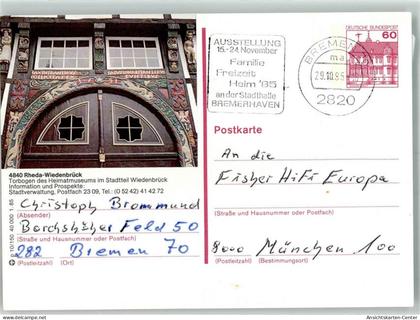 AUSSTELLUNG
15.-24. November
Familie
Freizeit
Heim '85
an der Stadthalle
BREMERHAVEN
BREMEN
ma
29.10.85
2820
DEUTSCHE BUNDESPOST
60
4840 Rheda-Wiedenbrück
Torbogen des Heimatmuseums im Stadtteil Wiedenbrück
Information und Prospekte:
Stadtverwaltung, Postfach 23 09, Tel.: (0 52 42) 41 42 72
Christoph Brommund
(Absender)
Borchshöher Feld 50
(Straße und Hausnummer oder Postfach)
282 Bremen 70
(Postleitzahl) (Ort)
p 10/150 40 000 1.85
Postkarte
An die
Fisher HiFi Europa
(Straße und Hausnummer oder Postfach)
8000 München 100
(Postleitzahl) (Bestimmungsort)
oldthing
© Ansichtskarten-Center